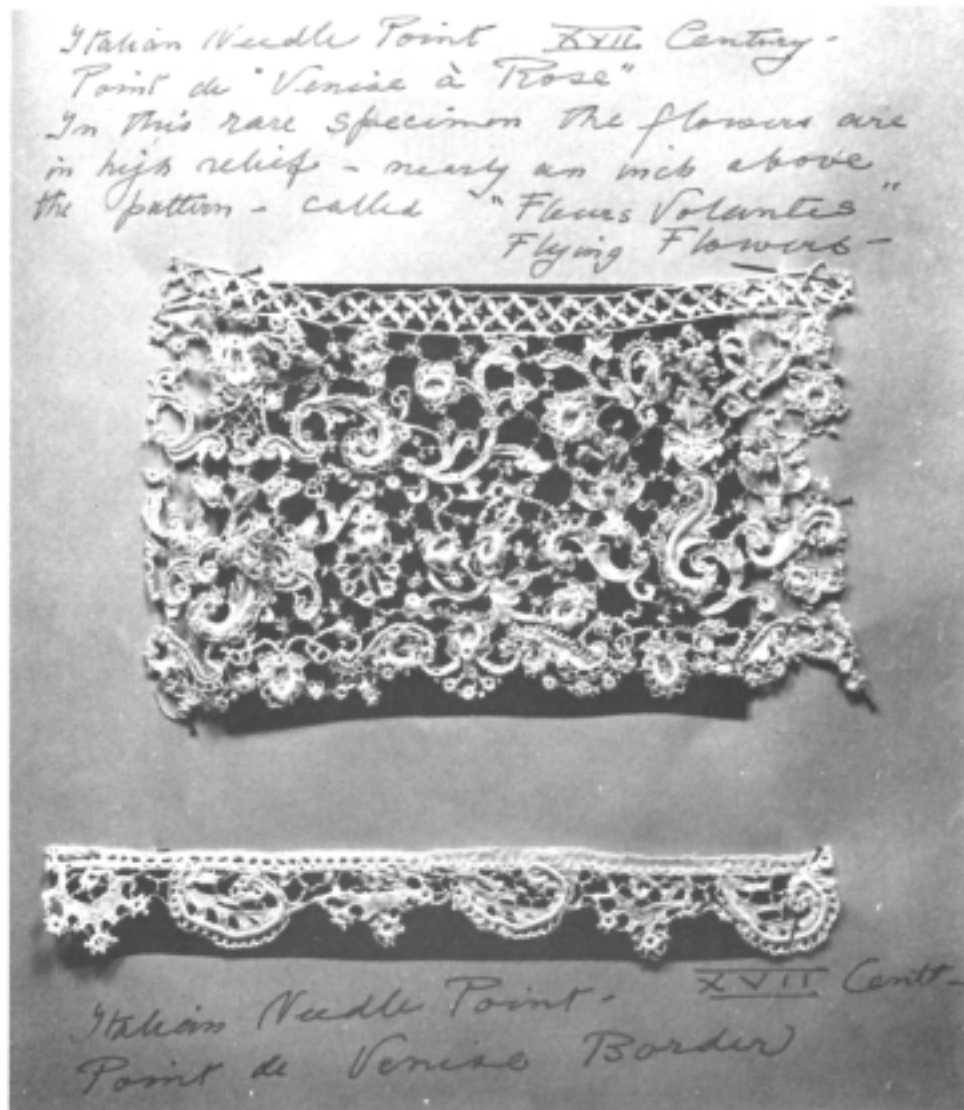 Italian Needle Point XVII Century -
Point de "Venise à Rose"
In this rare specimen the flowers are
in high relief - nearly an inch above
the pattern - called "Fleurs Volantes"
Flying Flowers -
XVII Cent -
Italian Needle Point -
Point de Venise Border